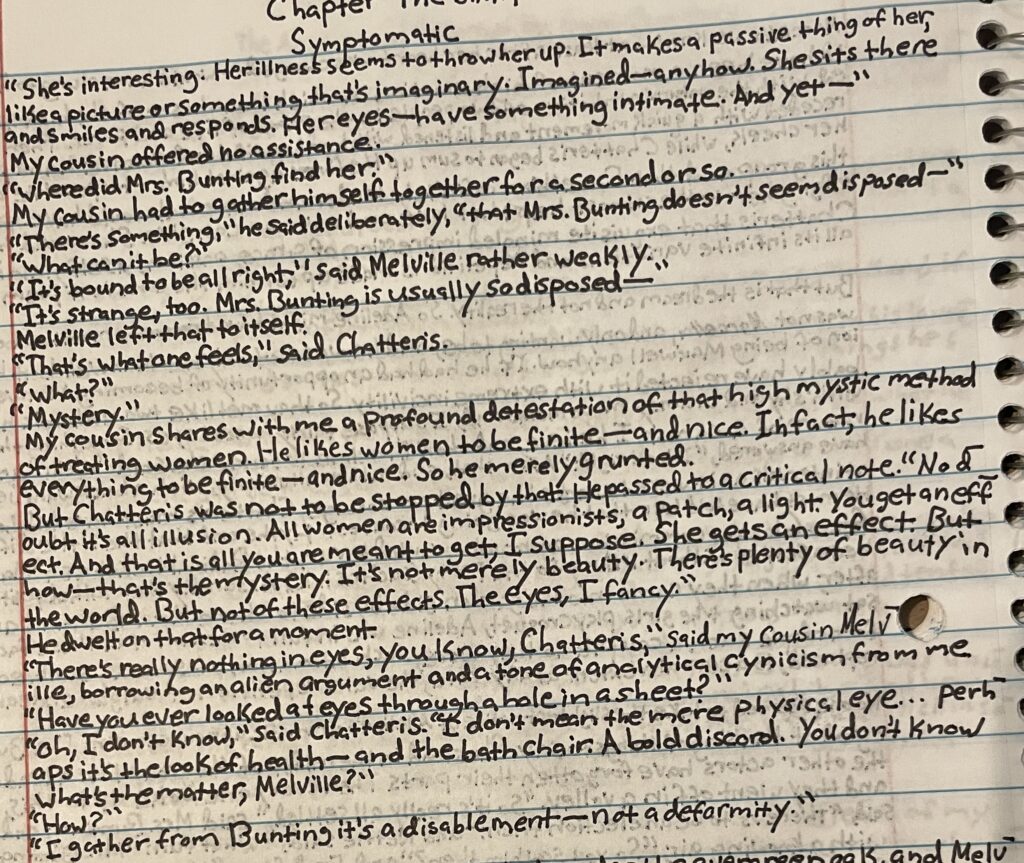 Chapter The
Symptomatic
"She's interesting. Her illness seems to throw her up. It makes a passive thing of her,
like a picture or something that's imaginary. Imagined—anyhow. She sits there
and smiles and responds. Her eyes—have something intimate. And yet—"
My cousin offered no assistance.
"Where did Mrs. Bunting find her."
My cousin had to gather himself together for a second or so.
"There's something," he said deliberately, "that Mrs. Bunting doesn't seem disposed—"
"What can it be?"
"It's bound to be all right," said Melville rather weakly.
"It's strange, too. Mrs. Bunting is usually so disposed—"
Melville left that to itself.
"That's what one feels," said Chatteris.
"What?"
"Mystery."
My cousin shares with me a profound detestation of that high mystic method
of treating women. He likes women to be finite—and nice. In fact, he likes
everything to be finite—and nice. So he merely grunted.
But Chatteris was not to be stopped by that. He passed to a critical note. "No d
oubt it's all illusion. All women are impressionists, a patch, a light. You get an eff
ect. And that is all you are meant to get, I suppose. She gets an effect. But
how—that's the mystery. It's not merely beauty. There's plenty of beauty in
the world. But not of these effects. The eyes, I fancy."
He dwelt on that for a moment.
"There's really nothing in eyes, you know, Chatteris," said my cousin Melv
ille, borrowing an alien argument and a tone of analytical cynicism from me
"Have you ever looked at eyes through a hole in a sheet?"
"Oh, I don't know," said Chatteris. "I don't mean the mere physical eye... perh
aps it's the look of health—and the bath chair. A bold discord. You don't know
what's the matter, Melville?"
"How?"
"I gather from Bunting it's a disablement—not a deformity."
and Melv